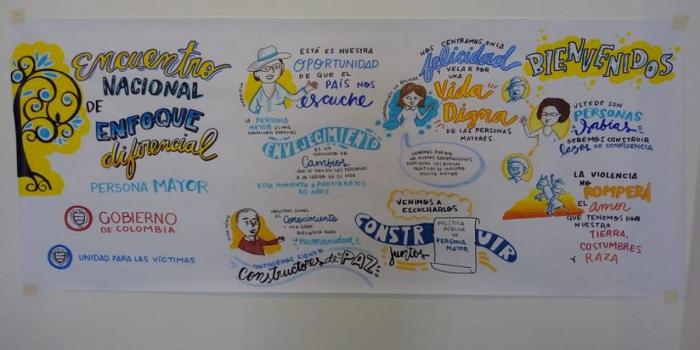 Encuentro
NACIONAL
DE
ENFOQUE
diferencial
PERSONA MAYOR
GOBIERNO
DE COLOMBIA
UNIDAD PARA LAS VÍCTIMAS
ESTÁ ES NUESTRA
OPORTUNIDAD
DE QUE EL
PAÍS NOS
escuche
LA PERSONA
MAYOR ES UNA
ENVEJECIMIENTO
ES UN
CONJUNTO DE
Cambios
QUE SE DAN EN LAS PERSONAS
A LO LARGO DE LA VIDA
ESTA COMIENZA A PARTIR DE LOS
60 AÑOS
NOSOTROS SOMOS EL
Conocimiento
Y UNA GRAN
PARA
LA Humanidad
CONTINUEMOS SIENDO
Constructores de PAZ
NOS CENTRAMOS EN LA
felicidad
Y VELAR POR
UNA
Vida
Digna
DE LAS PERSONAS
MAYORES.
VENIMOS A
ESCUCHARLOS
CONSTRUIR
juntos
POLÍTICA
PÚBLICA
DE
PERSONA
MAYOR
BIENVENIDOS
USTEDE SON
PERSONAS
Sabias
DEBEMOS CONSTRUIR
lazos DE CONFLUENCIA
LA VIOLENCIA
NO
ROMPERÁ
EL amor
QUE TENEMOS POR
NUESTRA
TIERRA,
COSTUMBRES
Y RAZA